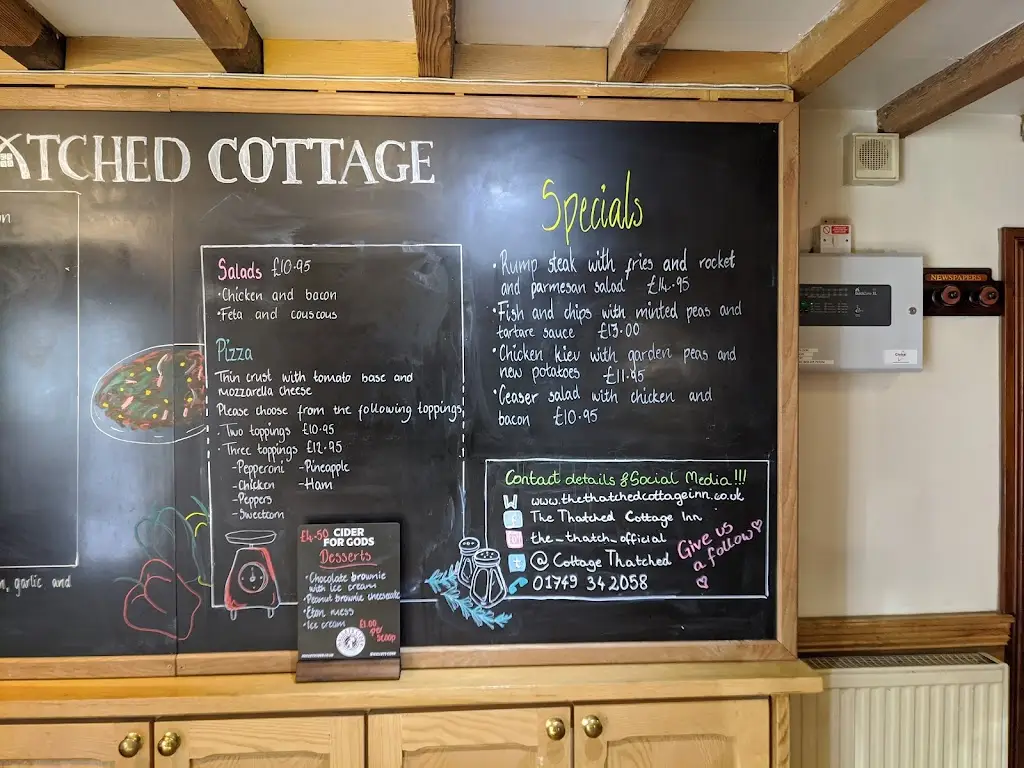 ATCHED COTTAGE
Salads £10.95
·Chicken and bacon
·Feta and couscous
Pizza
Thin crust with tomato base and
mozzarella cheese
Please choose from the following toppings
·Two toppings £10.95
·Three toppings £12.95
-Pepperoni -Pineapple
-Chicken -Ham
-Peppers
-Sweetcorn
, garlic and
£4.50 CIDER
FOR GODS
Desserts
·Chocolate brownie
with ice cream
·Peanut brownie cheesecake
·Eton mess
·Ice cream £1.00
per
scoop
Specials
·Rump steak with fries and rocket
and parmesan salad £14.95
·Fish and chips with minted peas and
tartare sauce £13.00
·Chicken kiev with garden peas and
new potatoes £11.95
·Ceaser salad with chicken and
bacon £10.95
Contact details & Social Media!!!
W www.thethatchedcottageinn.co.uk
f The Thatched Cottage Inn
the_thatch_official
t @ Cottage Thatched
01749 342058
Give us
a follow
NEWSPAPERS